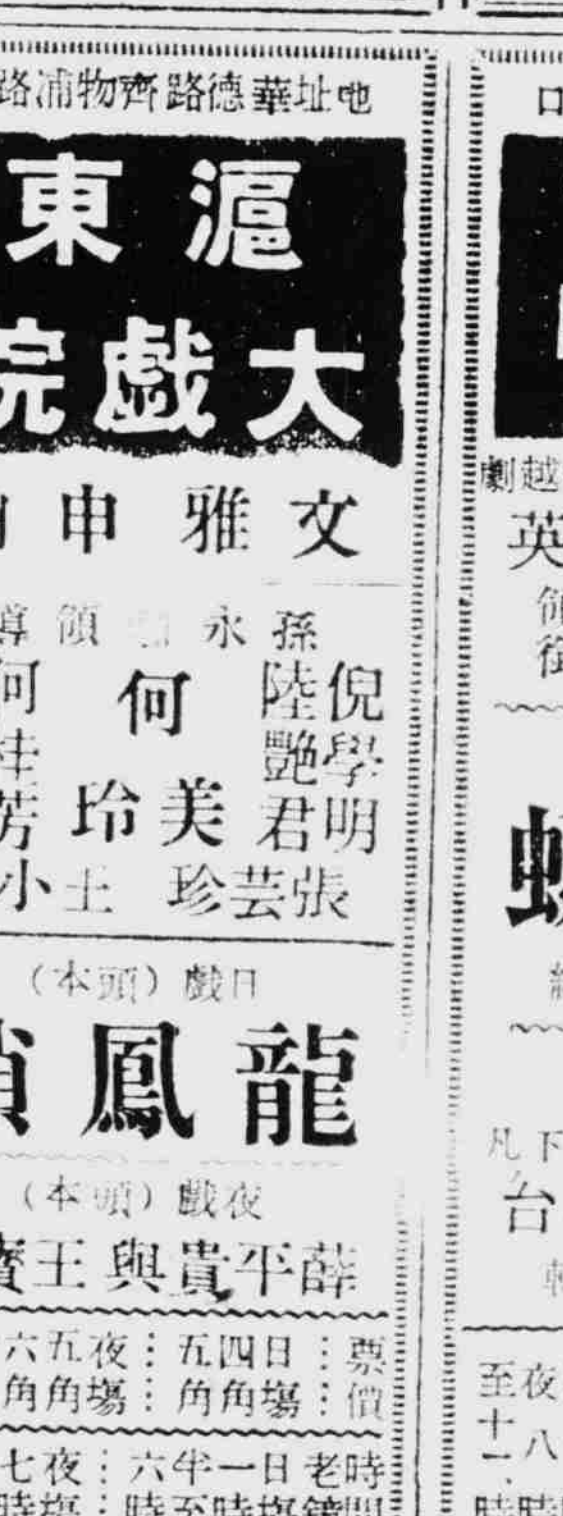 地址華德路齊物浦路
滬東
大戲院
文雅申
孫永 領導
倪學明
陸艷君
何美玲
何桂芳
張芸珍 王 小
日戲（頭本）
龍鳳
夜戲（頭本）
薛平貴與王寶
票價：日場四角五角：夜場五角六角
時間：老鐘日場一時半至六時：夜場七時
越劇
英
領銜
下
凡
台
夜八
至十一
時